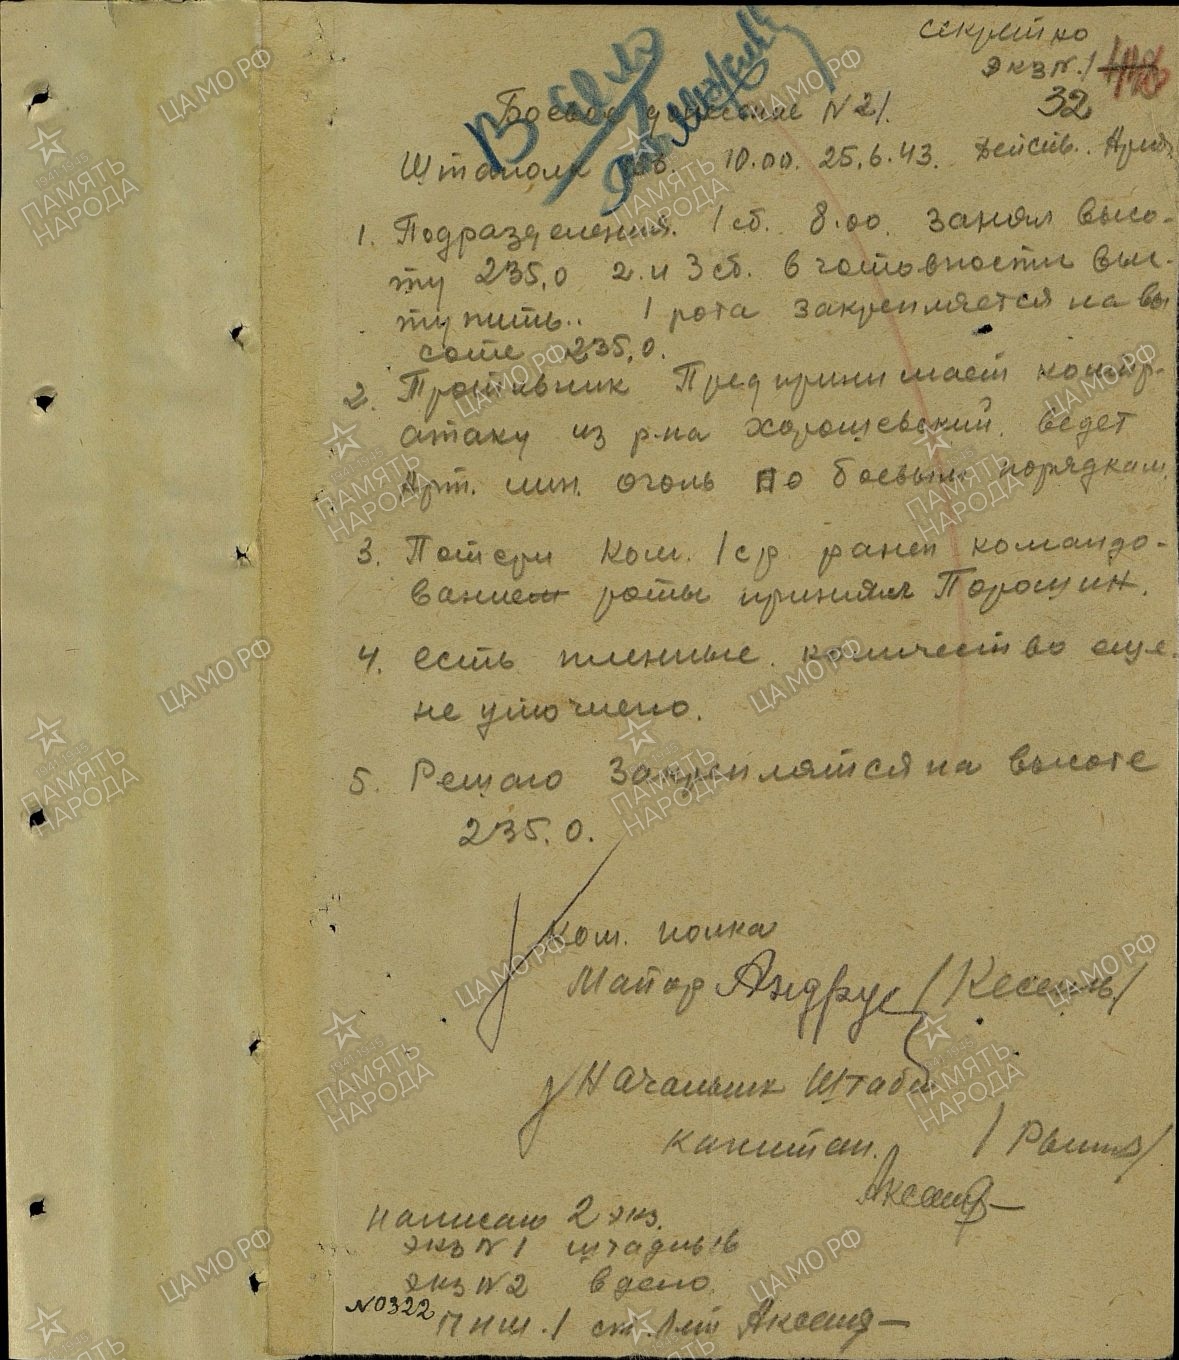 секретно
экз N.1
32
В дело
Боевое донесение N 21.
Штаполк 10.00. 25.6.43. Действ. Арм
1. Подразделения. 1 сб. 8.00. занял высо-
ту 235,0 2. и 3 сб. в готовности выс-
тупить.. 1 рота закрепляется на вы
соте 235,0.
2. Противник Предпринимает контр-
атаку из р-на Хорошевский. ведет
Арт. мин. огонь по боевым порядкам.
3. Потери Ком. 1 ср. ранен командо-
вание роты принял Порошин.
4. есть пленные. количество еще.
не уточнено.
5. Решаю Закреплятся на высоте
235.0.
Ком. полка
Майор /Кессель/
Начальник Штаба
капитан.
написано 2 экз.
экз N 1
экз N 2 в дело.
N0322
ПНШ.1 ст. л-т
ЦАМО РФ
ПАМЯТЬ
НАРОДА